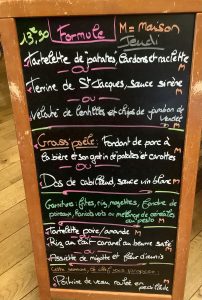 13€,50 Formule M = Maison
Jeudi
Tartelette de patates, lardons et raclette M
ou
Terrine de St Jacques, sauce sirène
ou M
Velouté de lentilles et chips de jambon de Vendée M
Cross poêlé: Fondant de porc à
la bière et son gratin de patates et carottes M
ou
Dos de cabillaud, sauce vin blanc M
Garniture: frites, riz, mogettes, Fondue de
poireaux, haricots verts ou mélange de céréales
au pesto M
Tartelette poire/amande M
ou
Riz au lait caramel au beurre salé M
ou
Assiette de mizotte et fleur d'aunis
Cette semaine, le chef vous propose:
Poitrine de veau rôtie en M